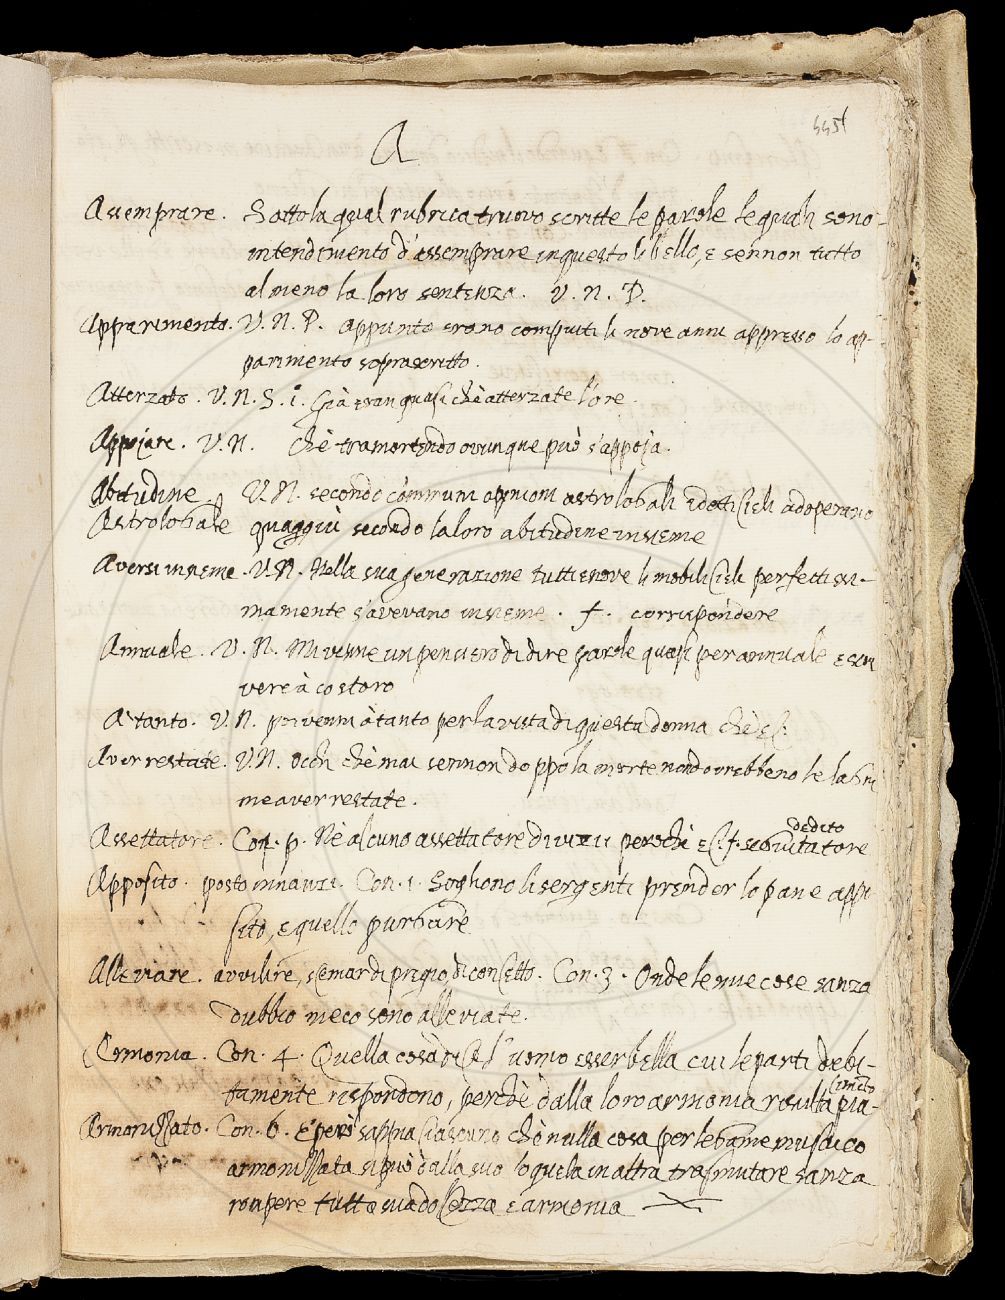 A
Assemprare. Sotto la qual rubrica truovo scritte le parole le quali sono
intendimento d'assemprare in questo libello, e sennon tutto
almeno la loro sentenza. V. N. P.
Apparimento. V. N. P. appunto erano compiuti li nove anni appresso lo ap-
parimento soprascritto.
Atterzato. V. N. S. i. Già eran quasi chè atterzate l'ore.
Appojare. V. N. chè tramortendo ovunque può s'appoja.
Abitudine V. N. secondo communi opinioni astrolobali i dotti Cieli adoperano
Astrolobale quaggiù secondo la loro abitudine insieme
Aversi insieme. V. N. Nella sua generazione tutti e nove li mobili Cieli perfettissi-
mamente s'avevano insieme. f. corrispondere
Annuale. V. N. Mi venne un pensiero di dire parole quasi per annuale e scri
vere à costoro
A tanto. V. N. poi venni à tanto per la vista di questa donna chè
Aver restate. V. N. occhi chè mai sennon doppo la morte non dovrebbeno le lagri
me aver restate.
dedito
Assettatore. Con. p. Nè alcuno assettatore di vizii perochè f. seguitatore
Apposito. posto innanzi. Con. 1. Sogliono li sergenti prender lo pane appo
sito, e quello purgare
Alleviare. avvilire, scemar di pregio, di concetto. Con. 3. Onde le mie cose sanza
dubbio meco sono alleviate.
Armonia. Con. 4. Quella cosa dice l'uomo esser bella cui le parti debi-
tamente rispondono, perchè dalla loro armonia resulta pia-
cimento
Armonizzato. Con. 6. E però sappia ciascuno chè nulla cosa per legame musaico
armonizzata si può dalla sua loquela in altra trasmutare sanza
rompere tutta sua dolcezza e armonia